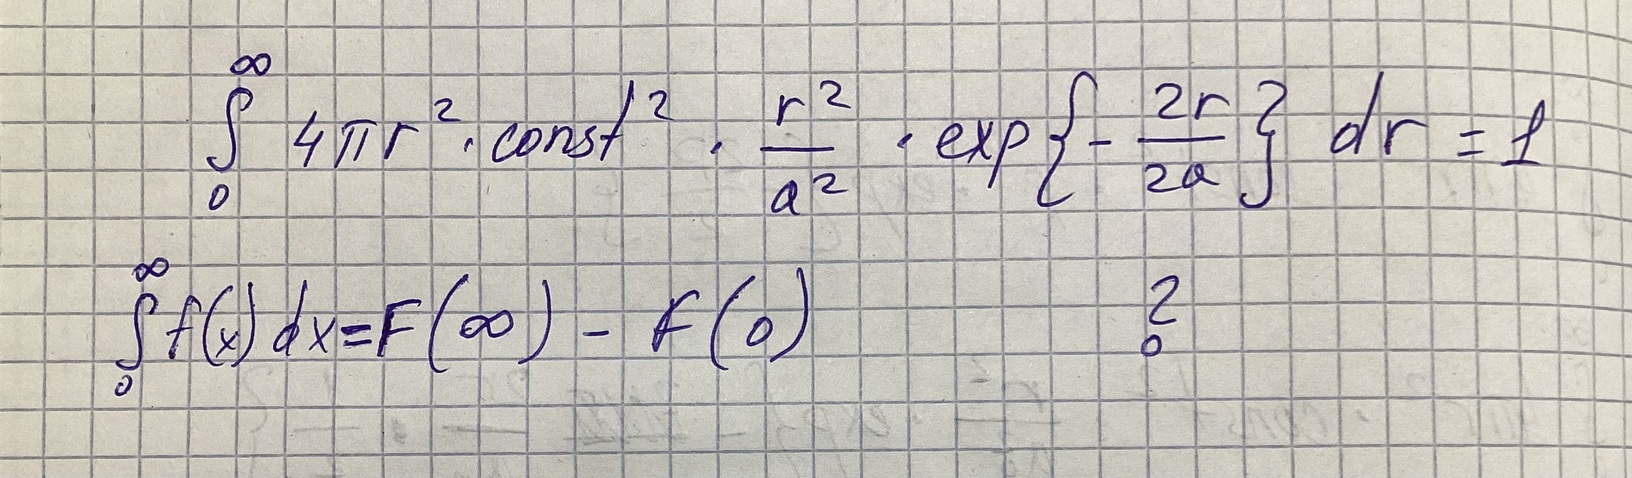 ∫₀^∞ 4πr² · const² · r²/a² · exp{-2r/2a} dr = 1
∫₀^∞ f(x) dx = F(∞) - F(0)
?